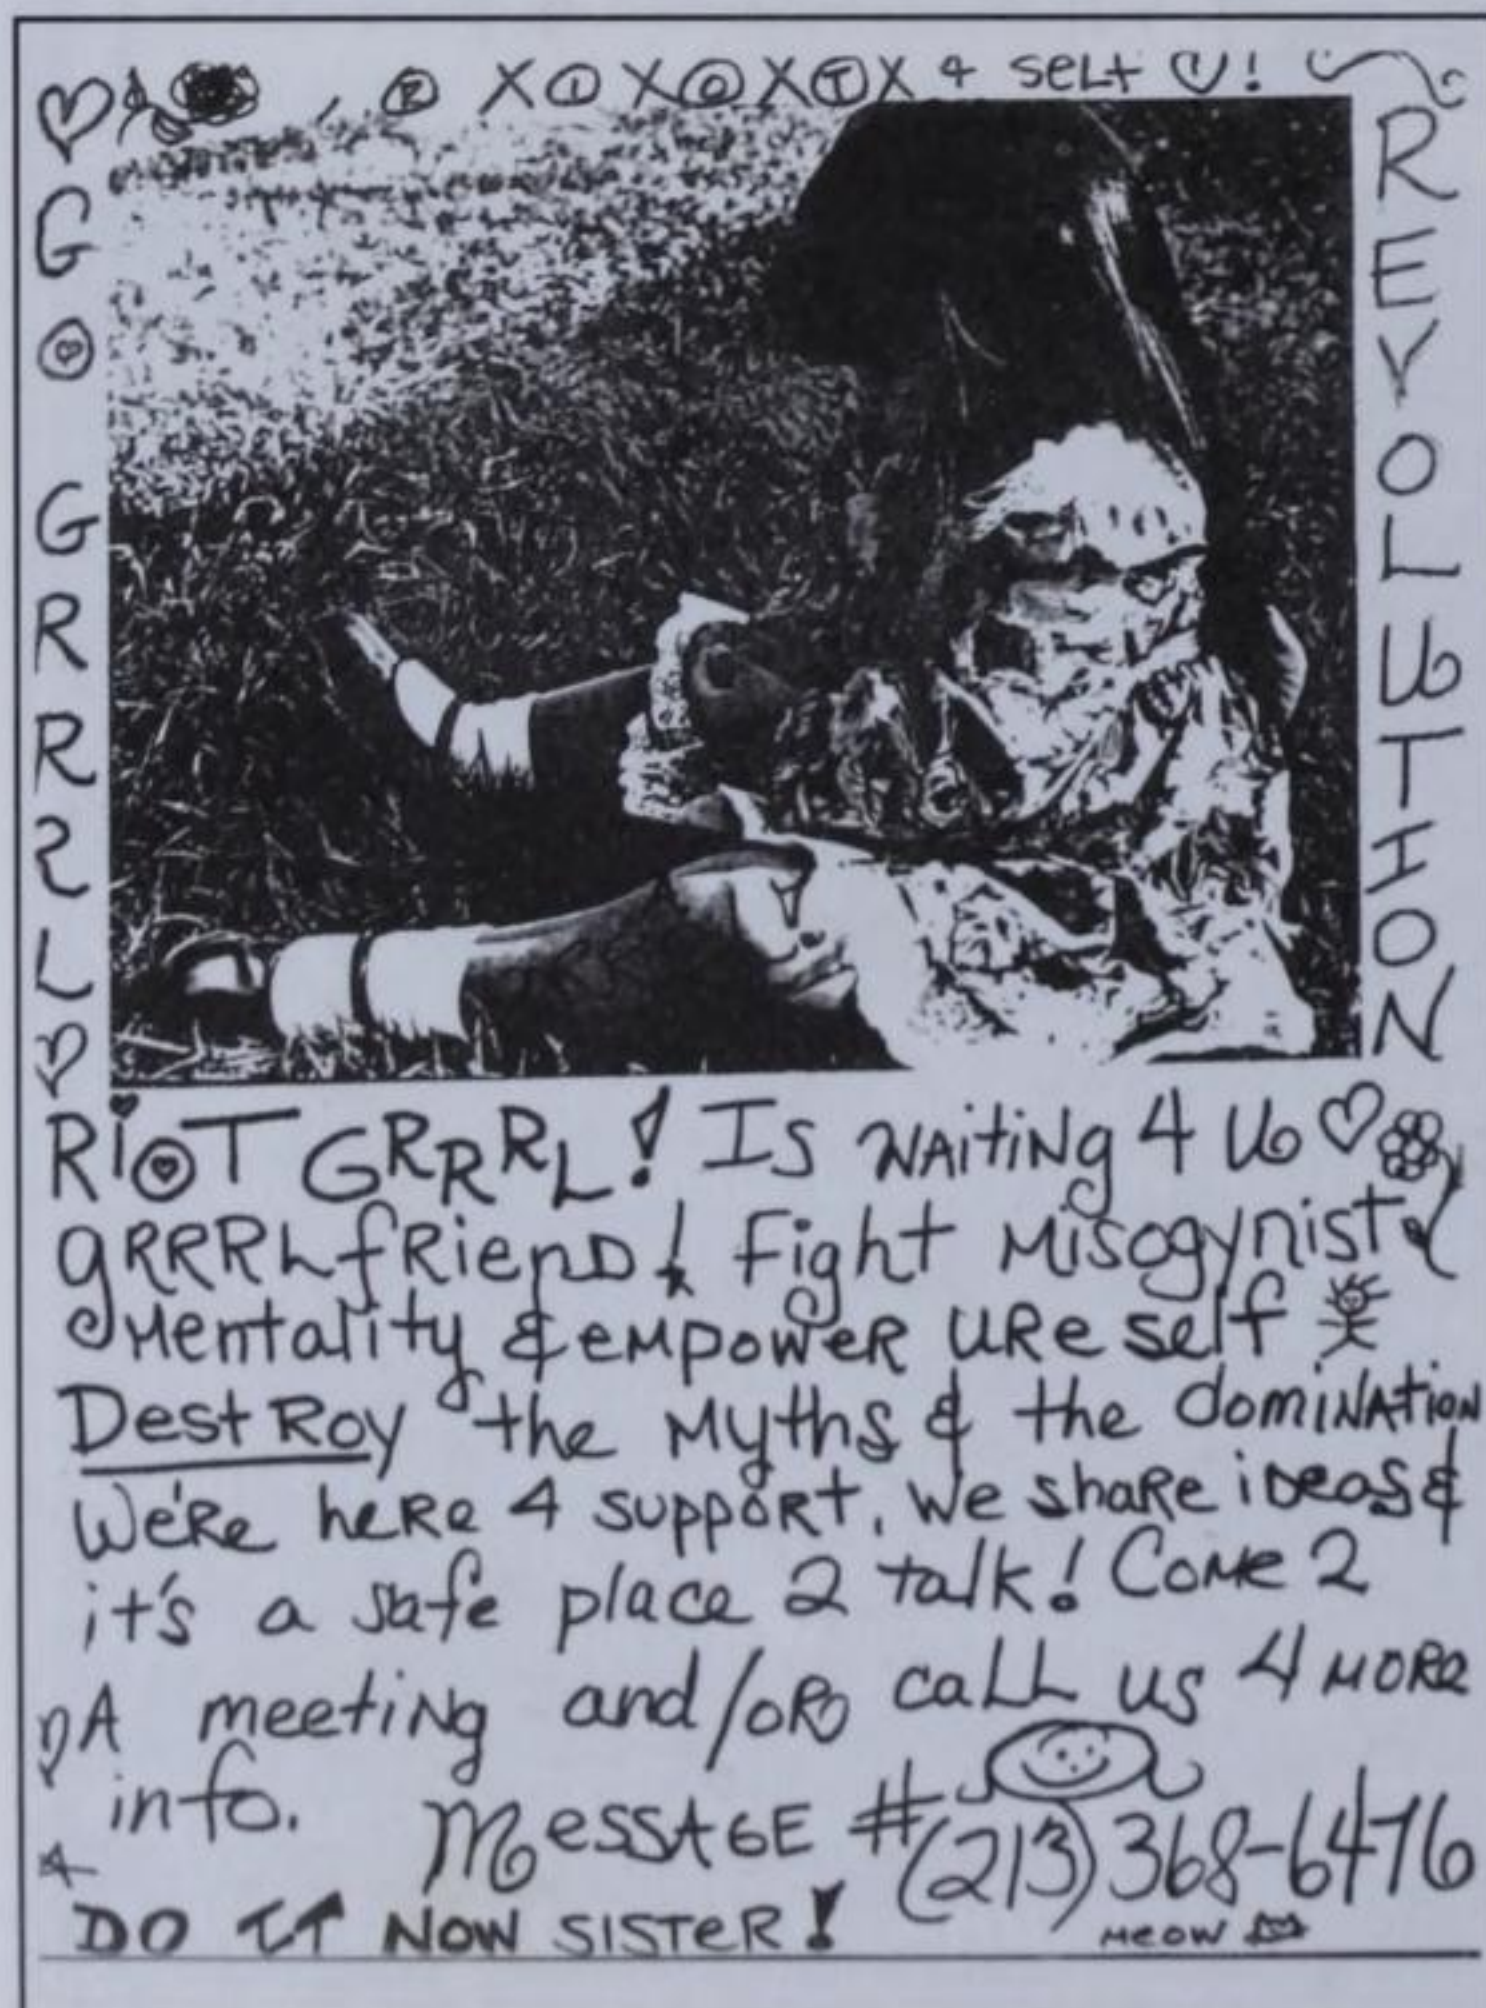 R X I X O X T X & SELF ♡!
GO GRRRL
REVOLUTION
RIOT GRRRL! Is WAiTiNg 4 U
gRRRLfRienD! Fight Misogynist
Mentality & eMpoweR URe self
DestRoy the Myths & the domiNAtion
We'Re heRe 4 suppoRt. We shaRe ideas &
it's a safe place 2 talk! CoMe 2
A meetiNg and/oR caLL us 4 MORe
info. MessAGE # (213) 368-6476
DO IT NOW SISTeR!
MeOW